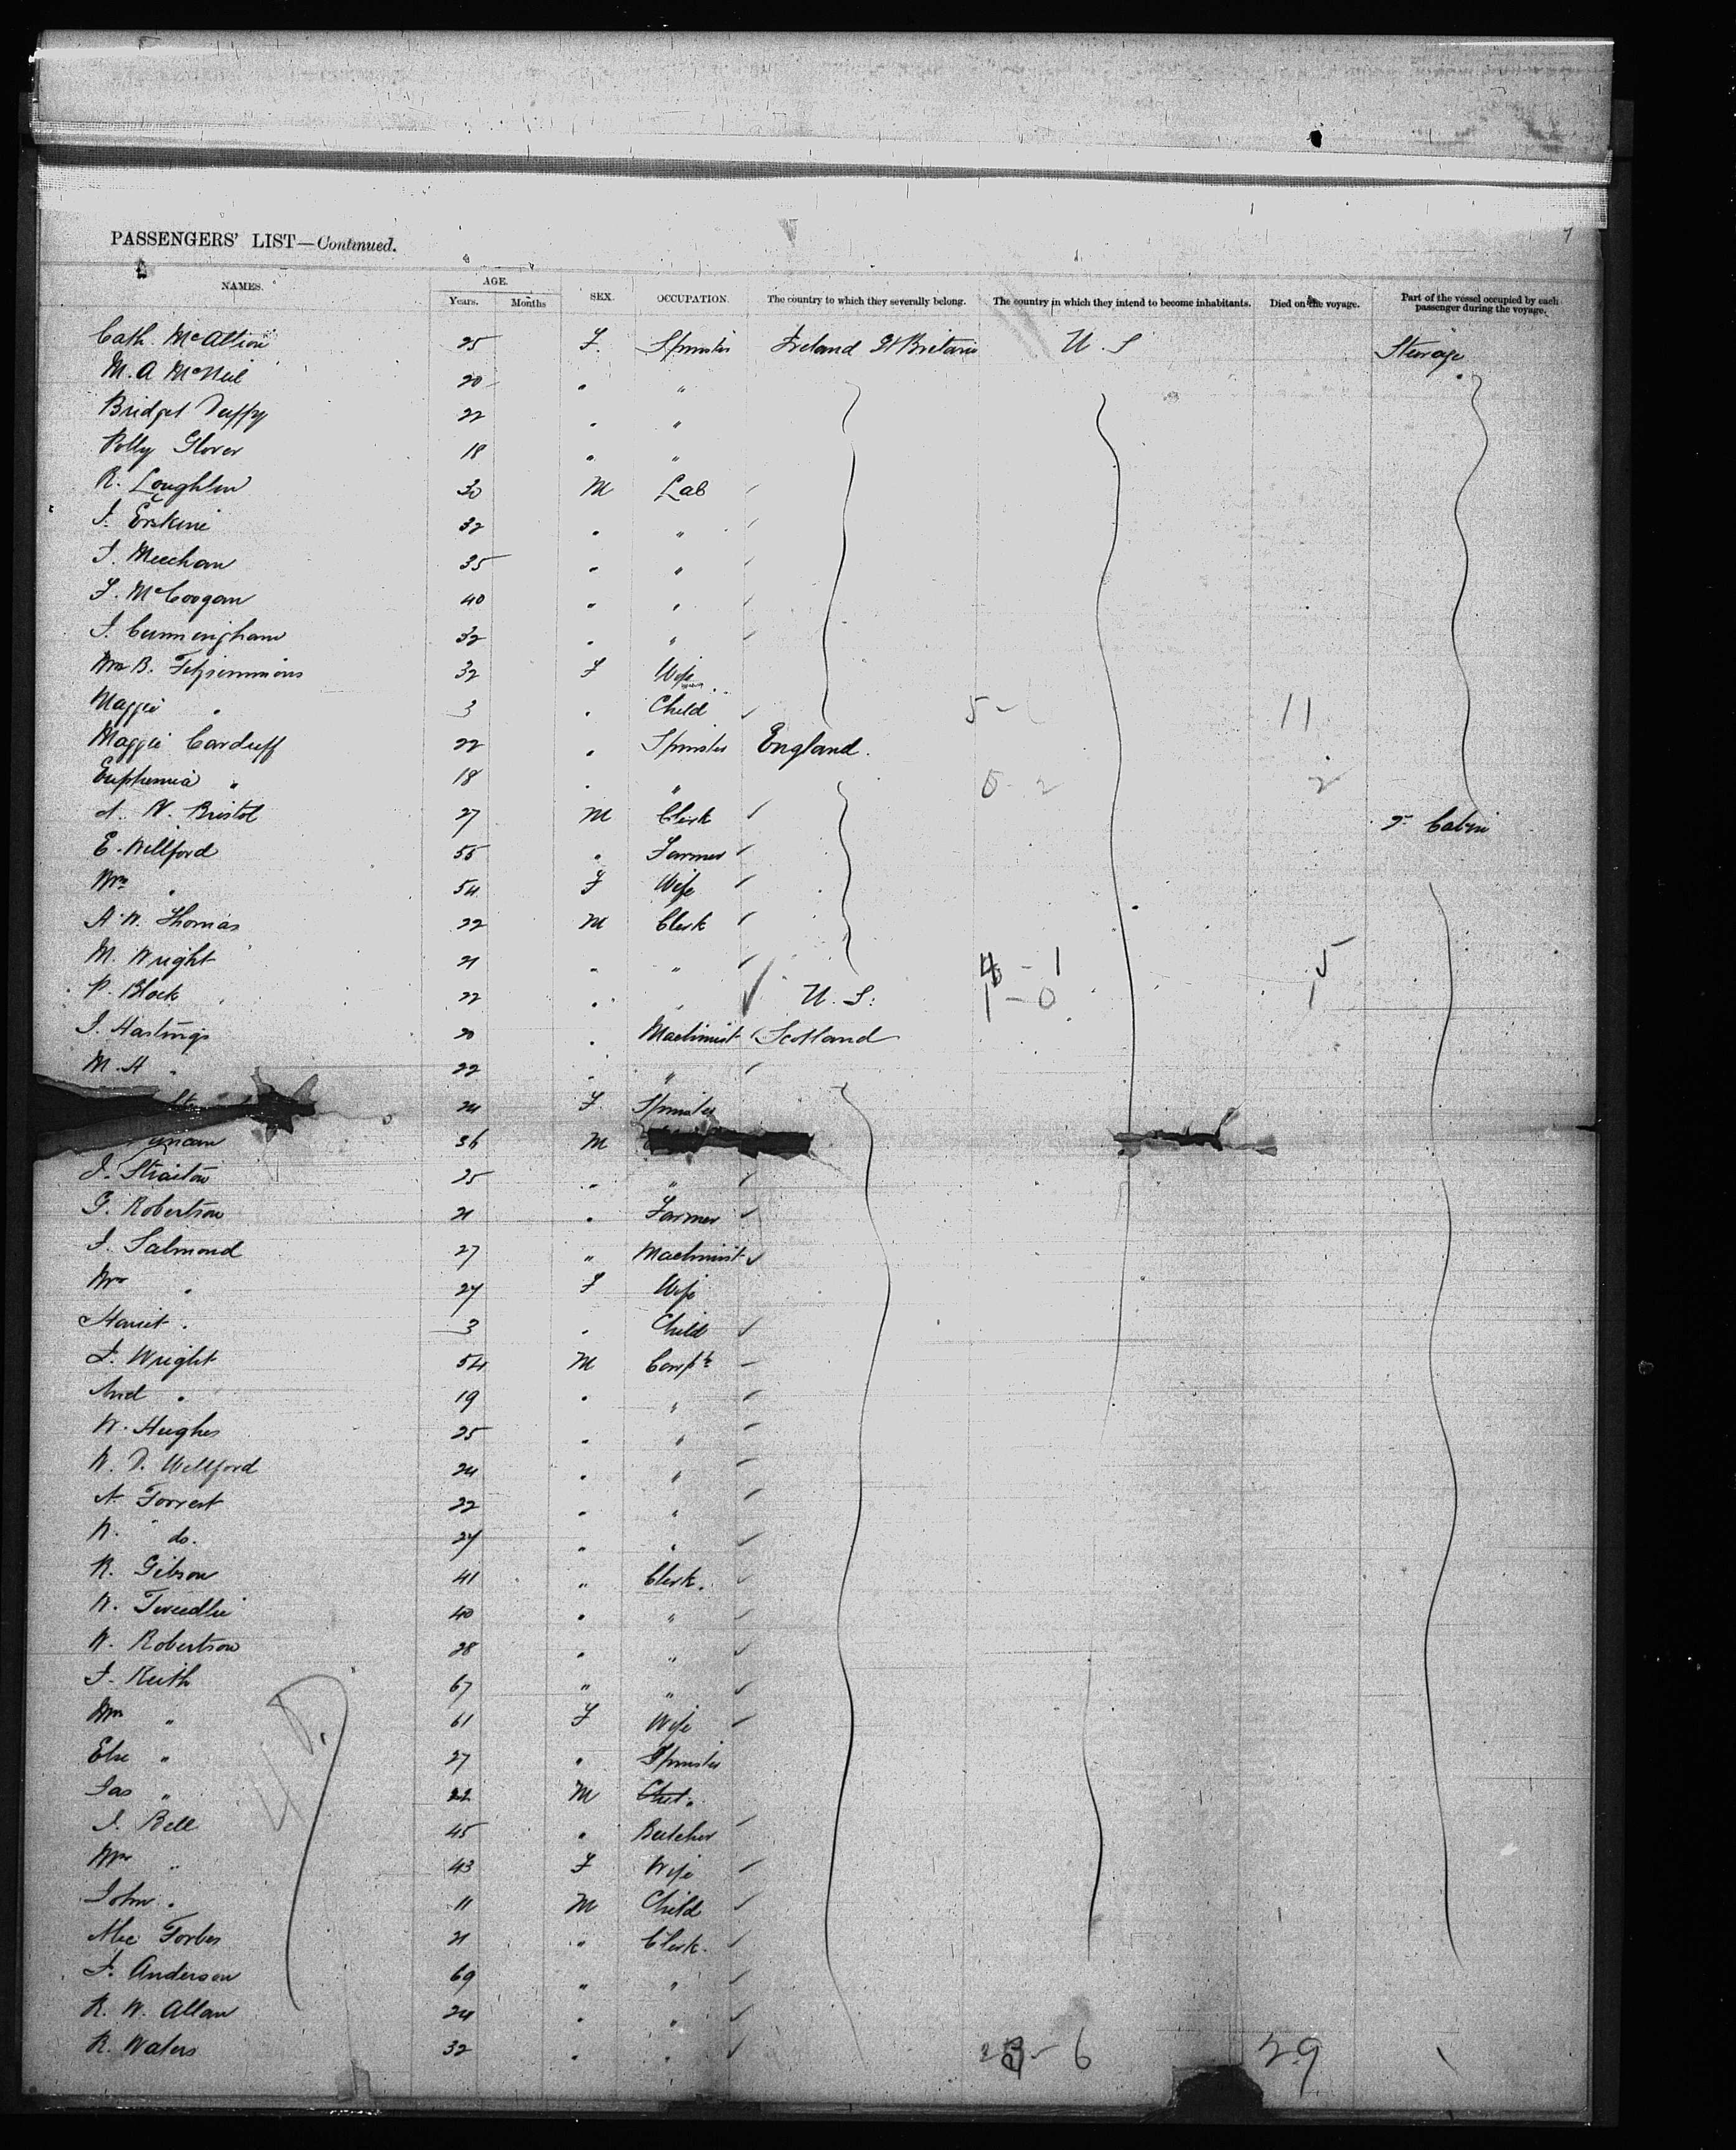 7
PASSENGERS' LIST—Continued.
NAMES. AGE. Years. Months SEX. OCCUPATION. The country to which they severally belong. The country in which they intend to become inhabitants. Died on the voyage. Part of the vessel occupied by each passenger during the voyage.
Cath McAllion 25 F. Spinster Ireland Gt Britain U.S Steerage
M. A McNeil 20 " "
Bridget Duffy 22 " "
Polly Glover 18 " "
R. Loughlin 30 M Lab
J. Erskine 32 " "
J. Meechan 35 " "
F. McGoogan 40 " "
J. Cunningham 32 " "
Mrs B. Fitzsimmons 32 F Wife
Maggie " 3 " Child 5- 11
Maggie Carduff 22 " Spinster England.
Euphemia " 18 " " 0-2 2
N. Bristol 27 M Clerk 2d Cabin
E. Wellford 55 " Farmer
Mrs " 54 F Wife
A. W. Thomas 22 M Clerk
M. Wright 21 " " 4-1 5
P. Block 22 " " U.S. 1-0 1
J. Hastings 20 " Machinist Scotland
M. H " 22 " "
24 F Spinster
36 M
J. Straiton 25 " "
G. Robertson 21 " Farmer
J. Salmond 27 " Machinist
Mrs " 27 F Wife
Harriet " 3 " Child
J. Wright 54 M Carptr
And " 19 " "
W. Hughes 25 " "
W. D. Wellford 24 " "
A. Forrest 22 " "
W. do. 27 " "
R. Gibson 41 " Clerk.
W. Tweedlie 40 " "
W. Robertson 28 " "
J. Keith 67 " "
Mrs " 61 F Wife
Else " 27 " Spinster
Jas " 22 M
J. Bell 45 " Butcher
Mrs " 43 F Wife
John " 11 M Child
Alec Forbes 21 " Clerk.
J. Anderson 69 " "
R. W. Allan 24 " "
R. Waters 32 " " 23-6 29